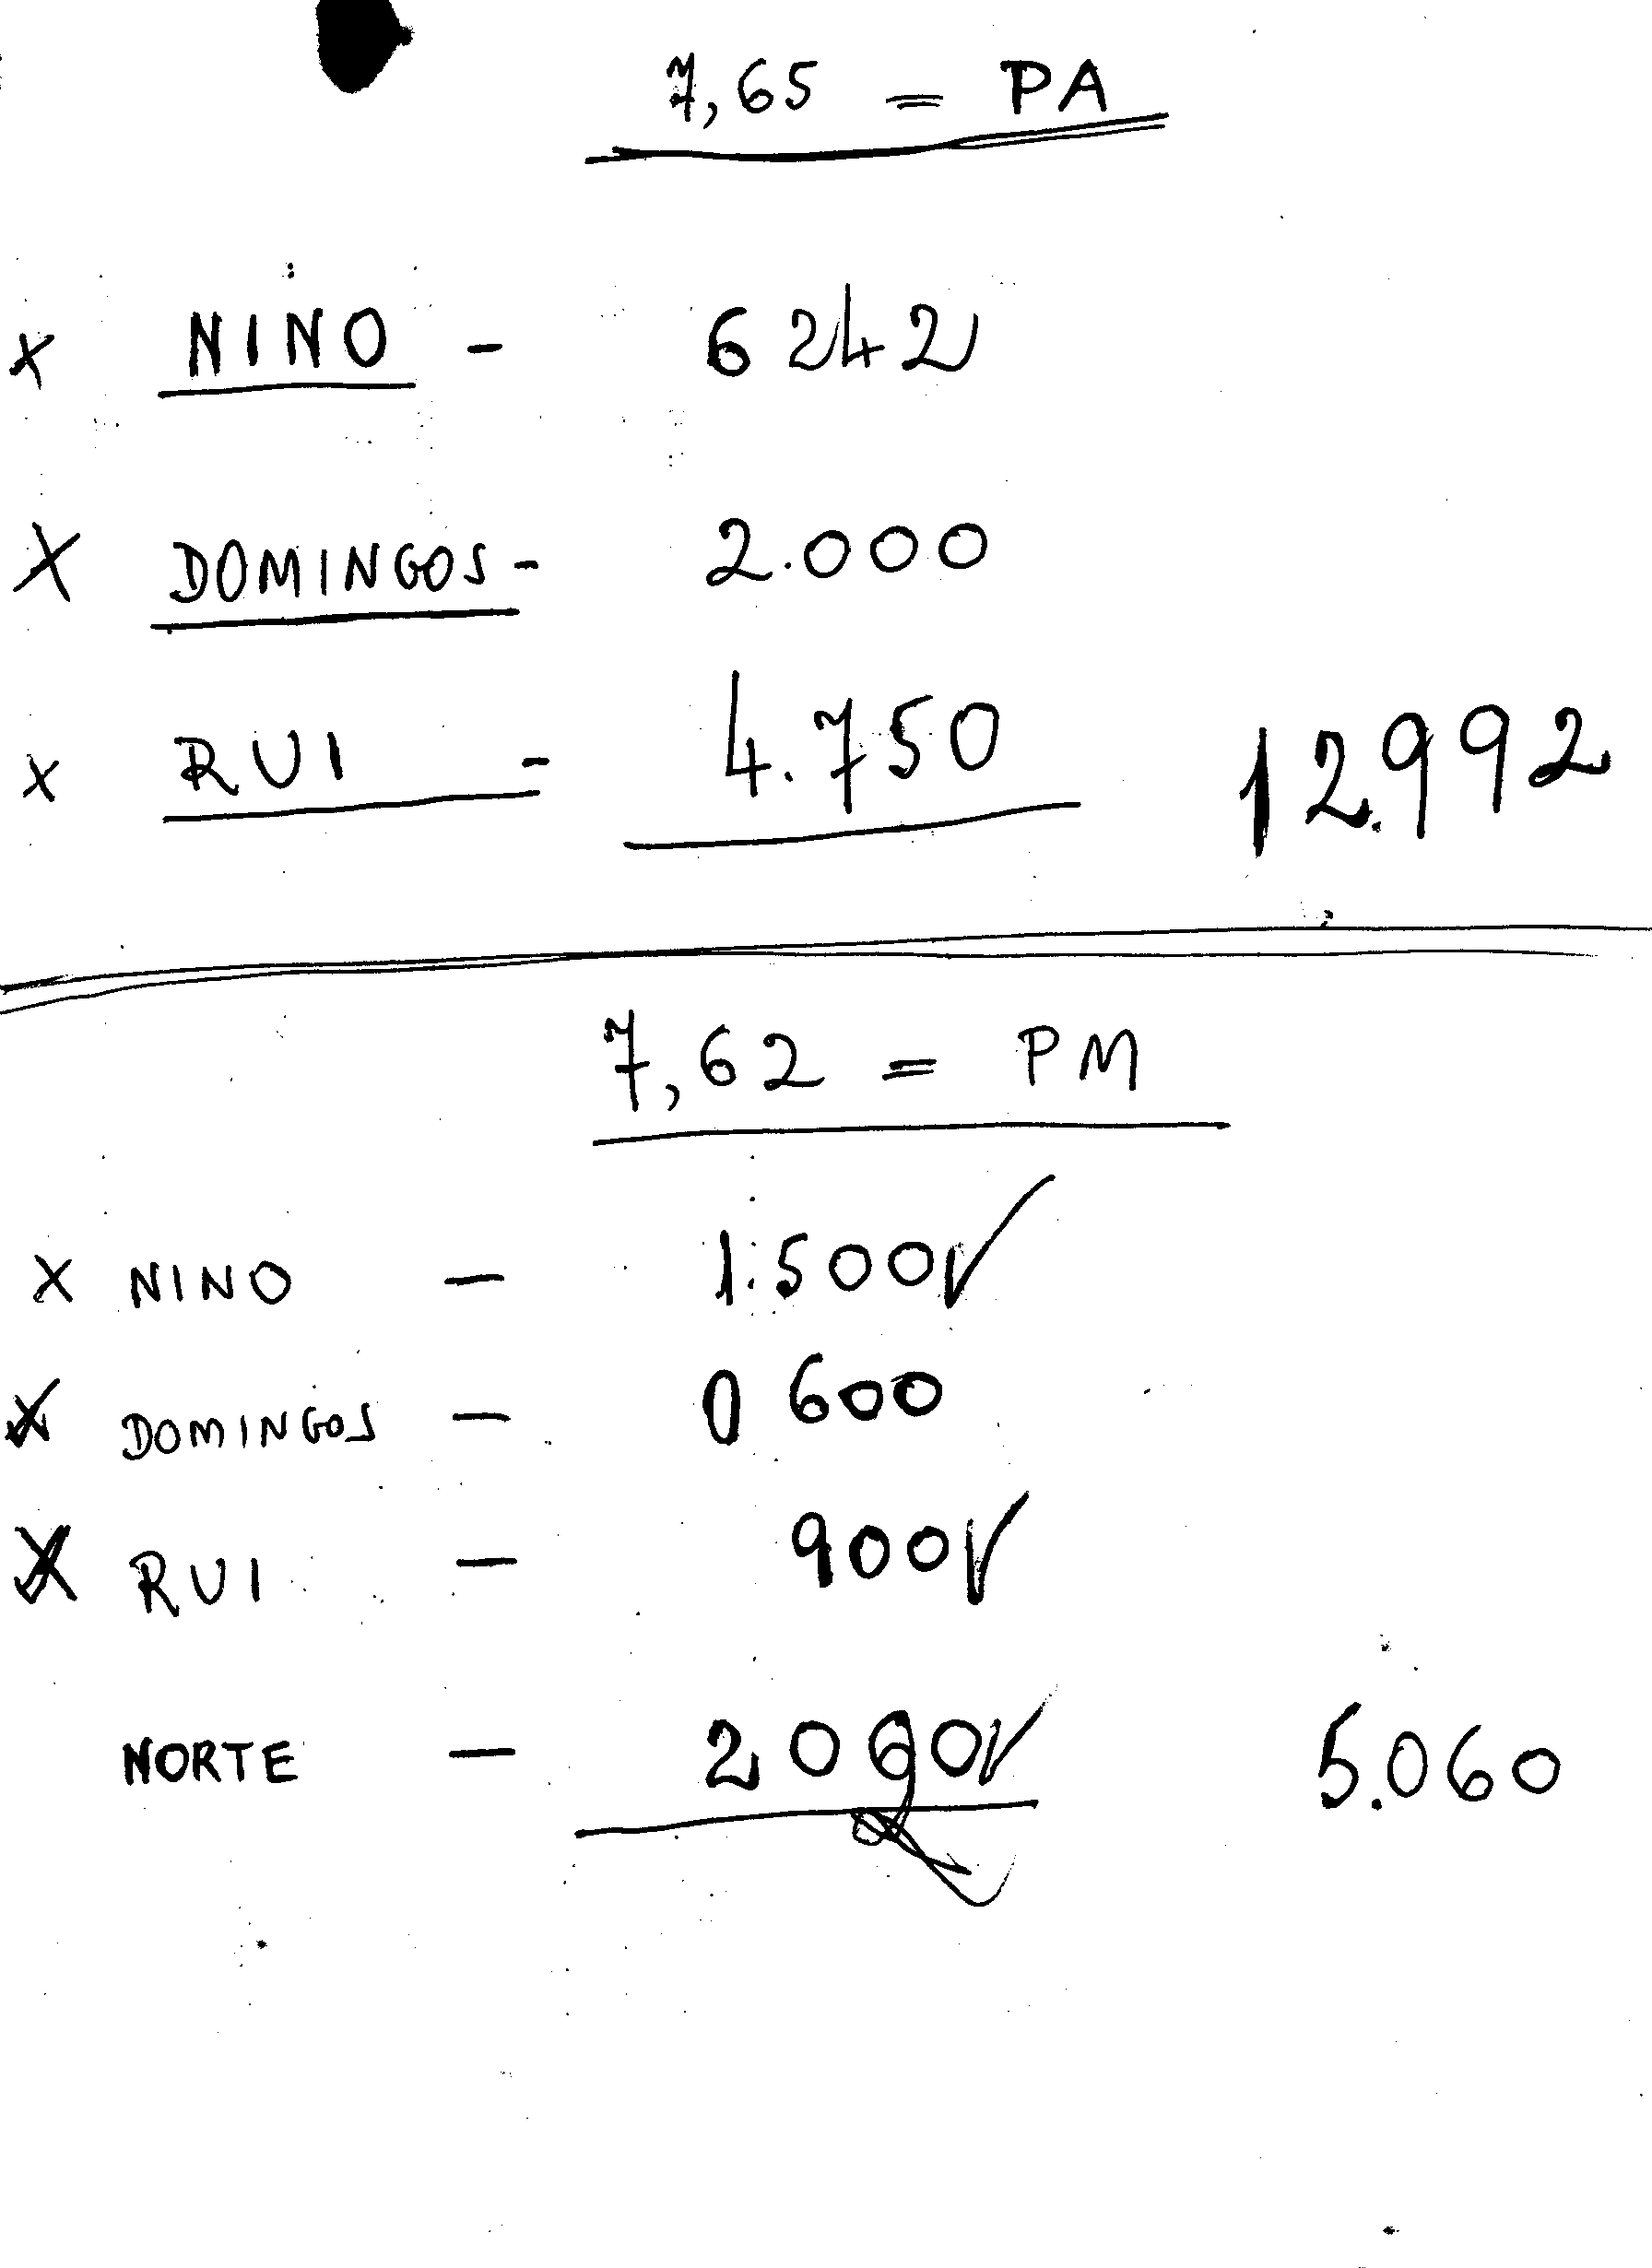 7,65 = PA
x NINO - 6242
X DOMINGOS - 2.000
x RUI - 4.750 12.992
7,62 = PM
x NINO - 1.500 √
x DOMINGOS - 0 600
X RUI - 900 √
NORTE - 2060 √ 5.060